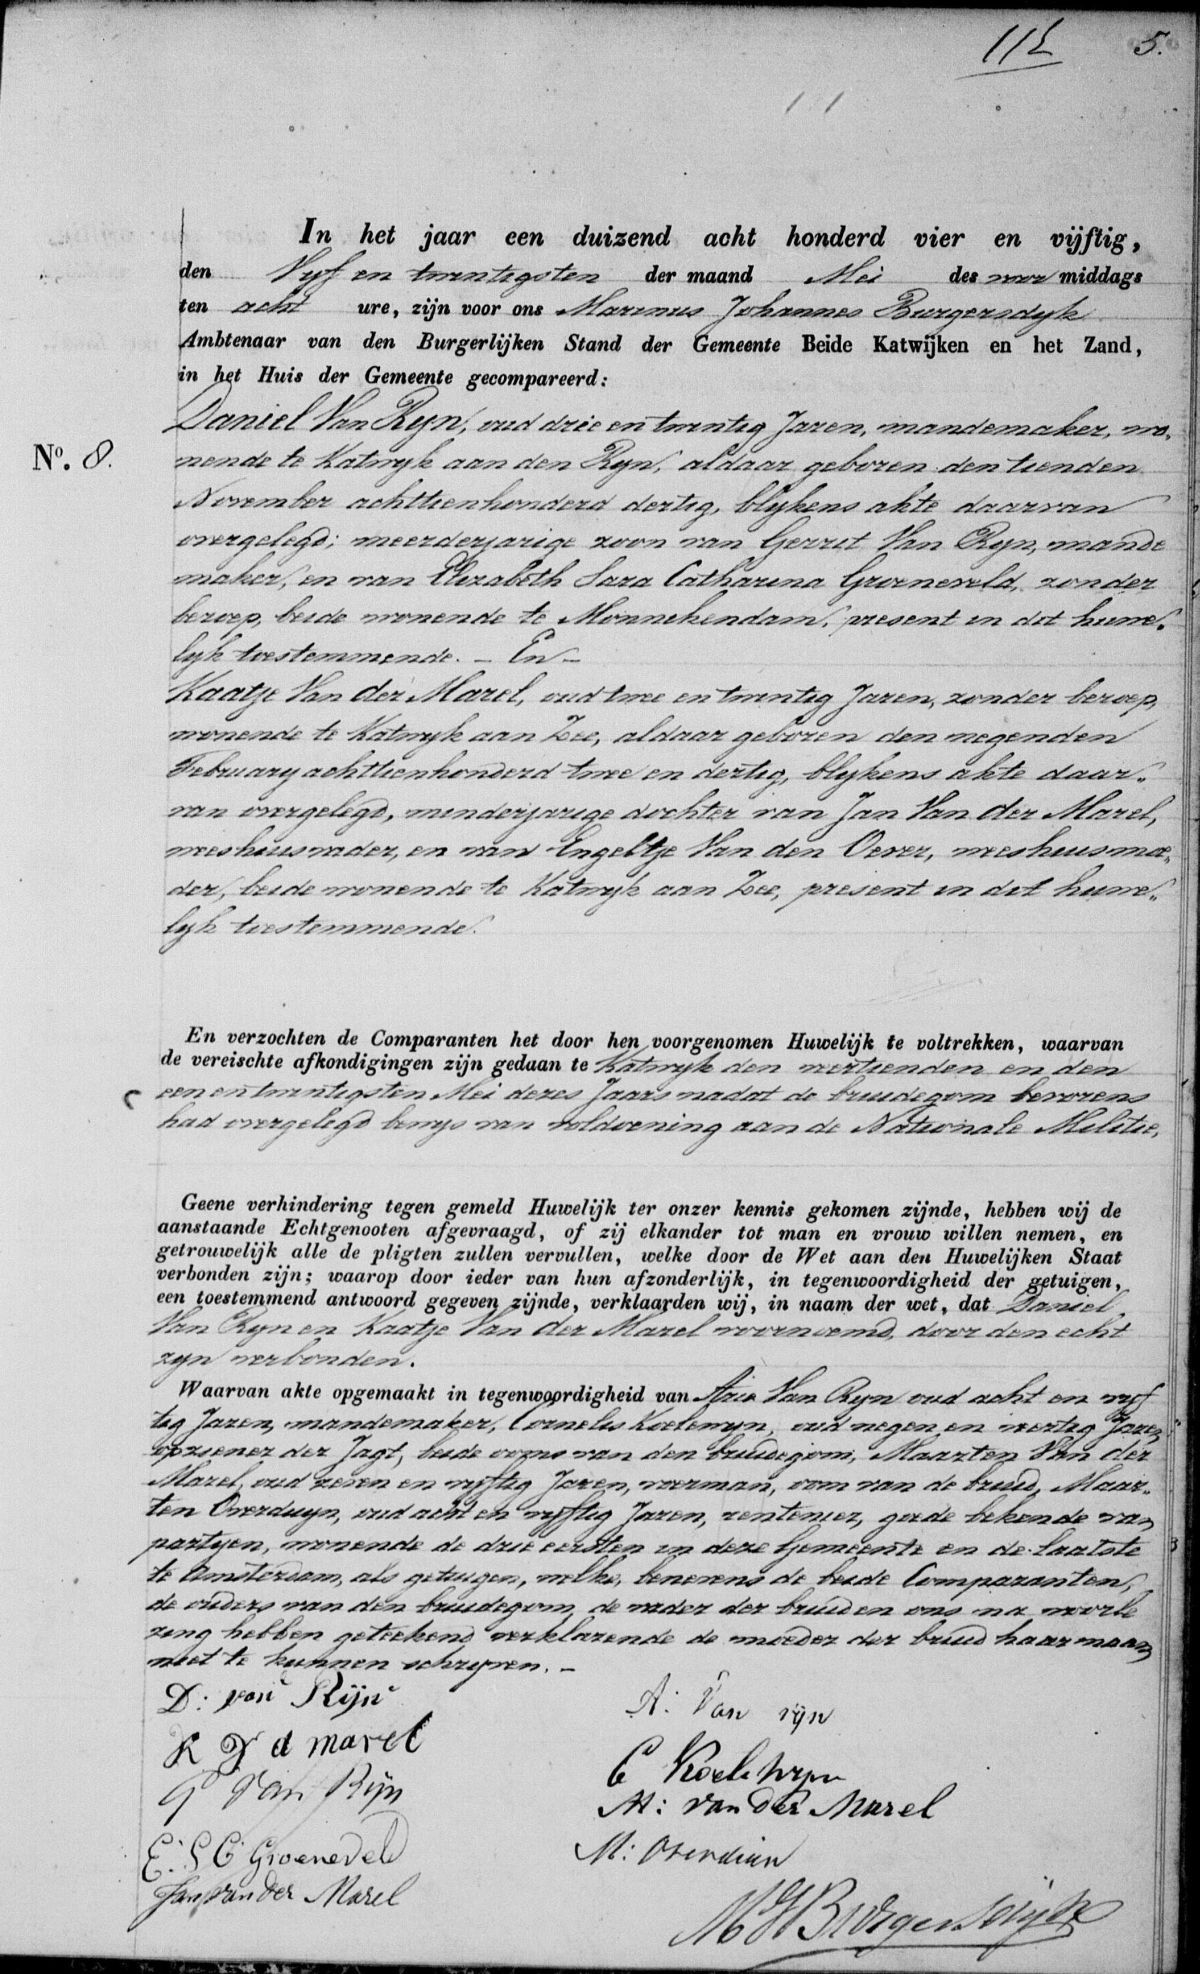 112 5.
In het jaar een duizend acht honderd vier en vijftig,
den Vyf en twintigsten der maand Mei des voor middags
ten acht ure, zijn voor ons Marinus Johannes Burgersdyk
Ambtenaar van den Burgerlijken Stand der Gemeente Beide Katwijken en het Zand,
in het Huis der Gemeente gecompareerd:
Daniel Van Ryn, oud drie en twintig Jaren, mandemaker, wo-
No. 8. nende te Katwyk aan den Ryn, aldaar geboren den tienden
November achttienhonderd dertig, blykens akte daarvan
overgelegd; meerderjarige zoon van Gerrit Van Ryn, mande
maker, en van Elizabeth Sara Catharina Groeneveld, zonder
beroep, beide wonende te Monnekendam, present in dit huwe-
lyk toestemmende. – En –
Kaatje Van der Marel, oud twee en twintig Jaren, zonder beroep,
wonende te Katwyk aan Zee, aldaar geboren den negenden
February achttienhonderd twee en dertig, blykens akte daar-
van overgelegd, minderjarige dochter van Jan Van der Marel,
weeshuisvader, en van Engeltje Van den Oever, weeshuismoe-
der, beide wonende te Katwyk aan Zee, present in dit huwe-
lyk toestemmende.
En verzochten de Comparanten het door hen voorgenomen Huwelijk te voltrekken, waarvan
de vereischte afkondigingen zijn gedaan te Katwyk den veertienden en den
een en twintigsten Mei dezes Jaars nadat de bruidegom bevorens
had overgelegd bewys van voldoening aan de Nationale Militie.
Geene verhindering tegen gemeld Huwelijk ter onzer kennis gekomen zijnde, hebben wij de
aanstaande Echtgenooten afgevraagd, of zij elkander tot man en vrouw willen nemen, en
getrouwelijk alle de pligten zullen vervullen, welke door de Wet aan den Huwelijken Staat
verbonden zijn; waarop door ieder van hun afzonderlijk, in tegenwoordigheid der getuigen,
een toestemmend antwoord gegeven zijnde, verklaarden wij, in naam der wet, dat Daniel
Van Ryn en Kaatje Van der Marel voornoemd, door den echt
zyn verbonden.
Waarvan akte opgemaakt in tegenwoordigheid van Arie Van Ryn oud acht en vyf
tig Jaren, mandemaker, Cornelis Koelewyn, oud negen en veertig Jaren,
opziener der Jagt, beide ooms van den bruidegom, Maarten Van der
Marel, oud zeven en vyftig Jaren, voerman, oom van de bruid, Maar-
ten Overduyn, oud acht en vyftig Jaren, rentenier, goede bekende van
partyen, wonende de drie eersten in deze Gemeente en de laatste
te Amsterdam, als getuigen, welke, benevens de beide Comparanten,
de ouders van den bruidegom, de vader der bruid en ons na voorle
zing hebben geteekend verklarende de moeder der bruid haar naam
niet te kunnen schryven. –
D: van Rijn A: Van rijn
K V d marel C Koelewyn
G Van Rijn M: van der Marel
E. S C Groeneveld M: Overduin
Jan van der Marel MJBurgersdijk